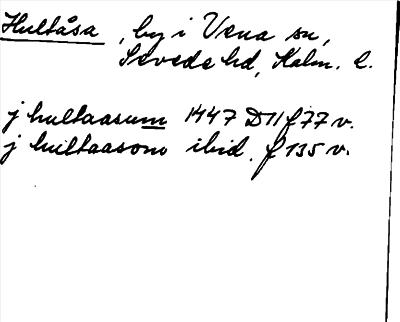 Hultåsa, by i Vena sn,
Sevede hd, Kalm. l.
j hultaasum 1447 D11 f 77 v.
j hultaasom ibid. f 135 v.